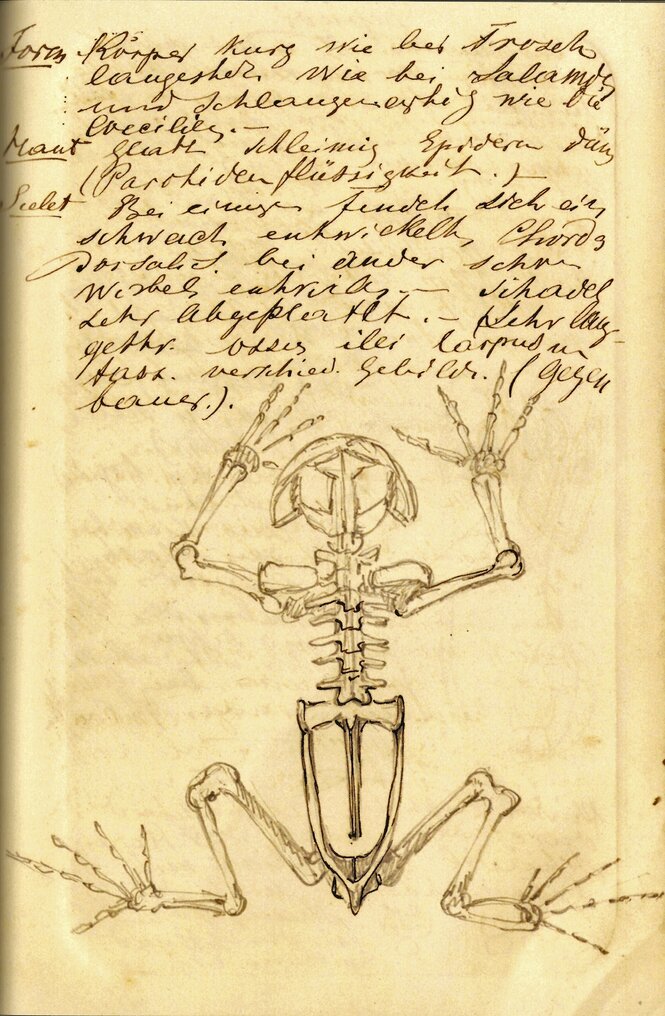 Form Körper kurz wie bei Frosch
langestreckt wie bei Salamder
und Schlangenartig wie bei
Coecilien.—
Haut glatt schleimig Epiderm dün
(Parotidenflüssigkeit.)—
Scelet Bei einigen findet sich ein
schwach entwickelte Chorda
Dorsalis bei ander schon
Wirbel entwickl.— Schädel
sehr Abgeplattet.— Sehr lang
ossa ilei Carpus u
verschied. Gebildet. (Gegen
bauer.).